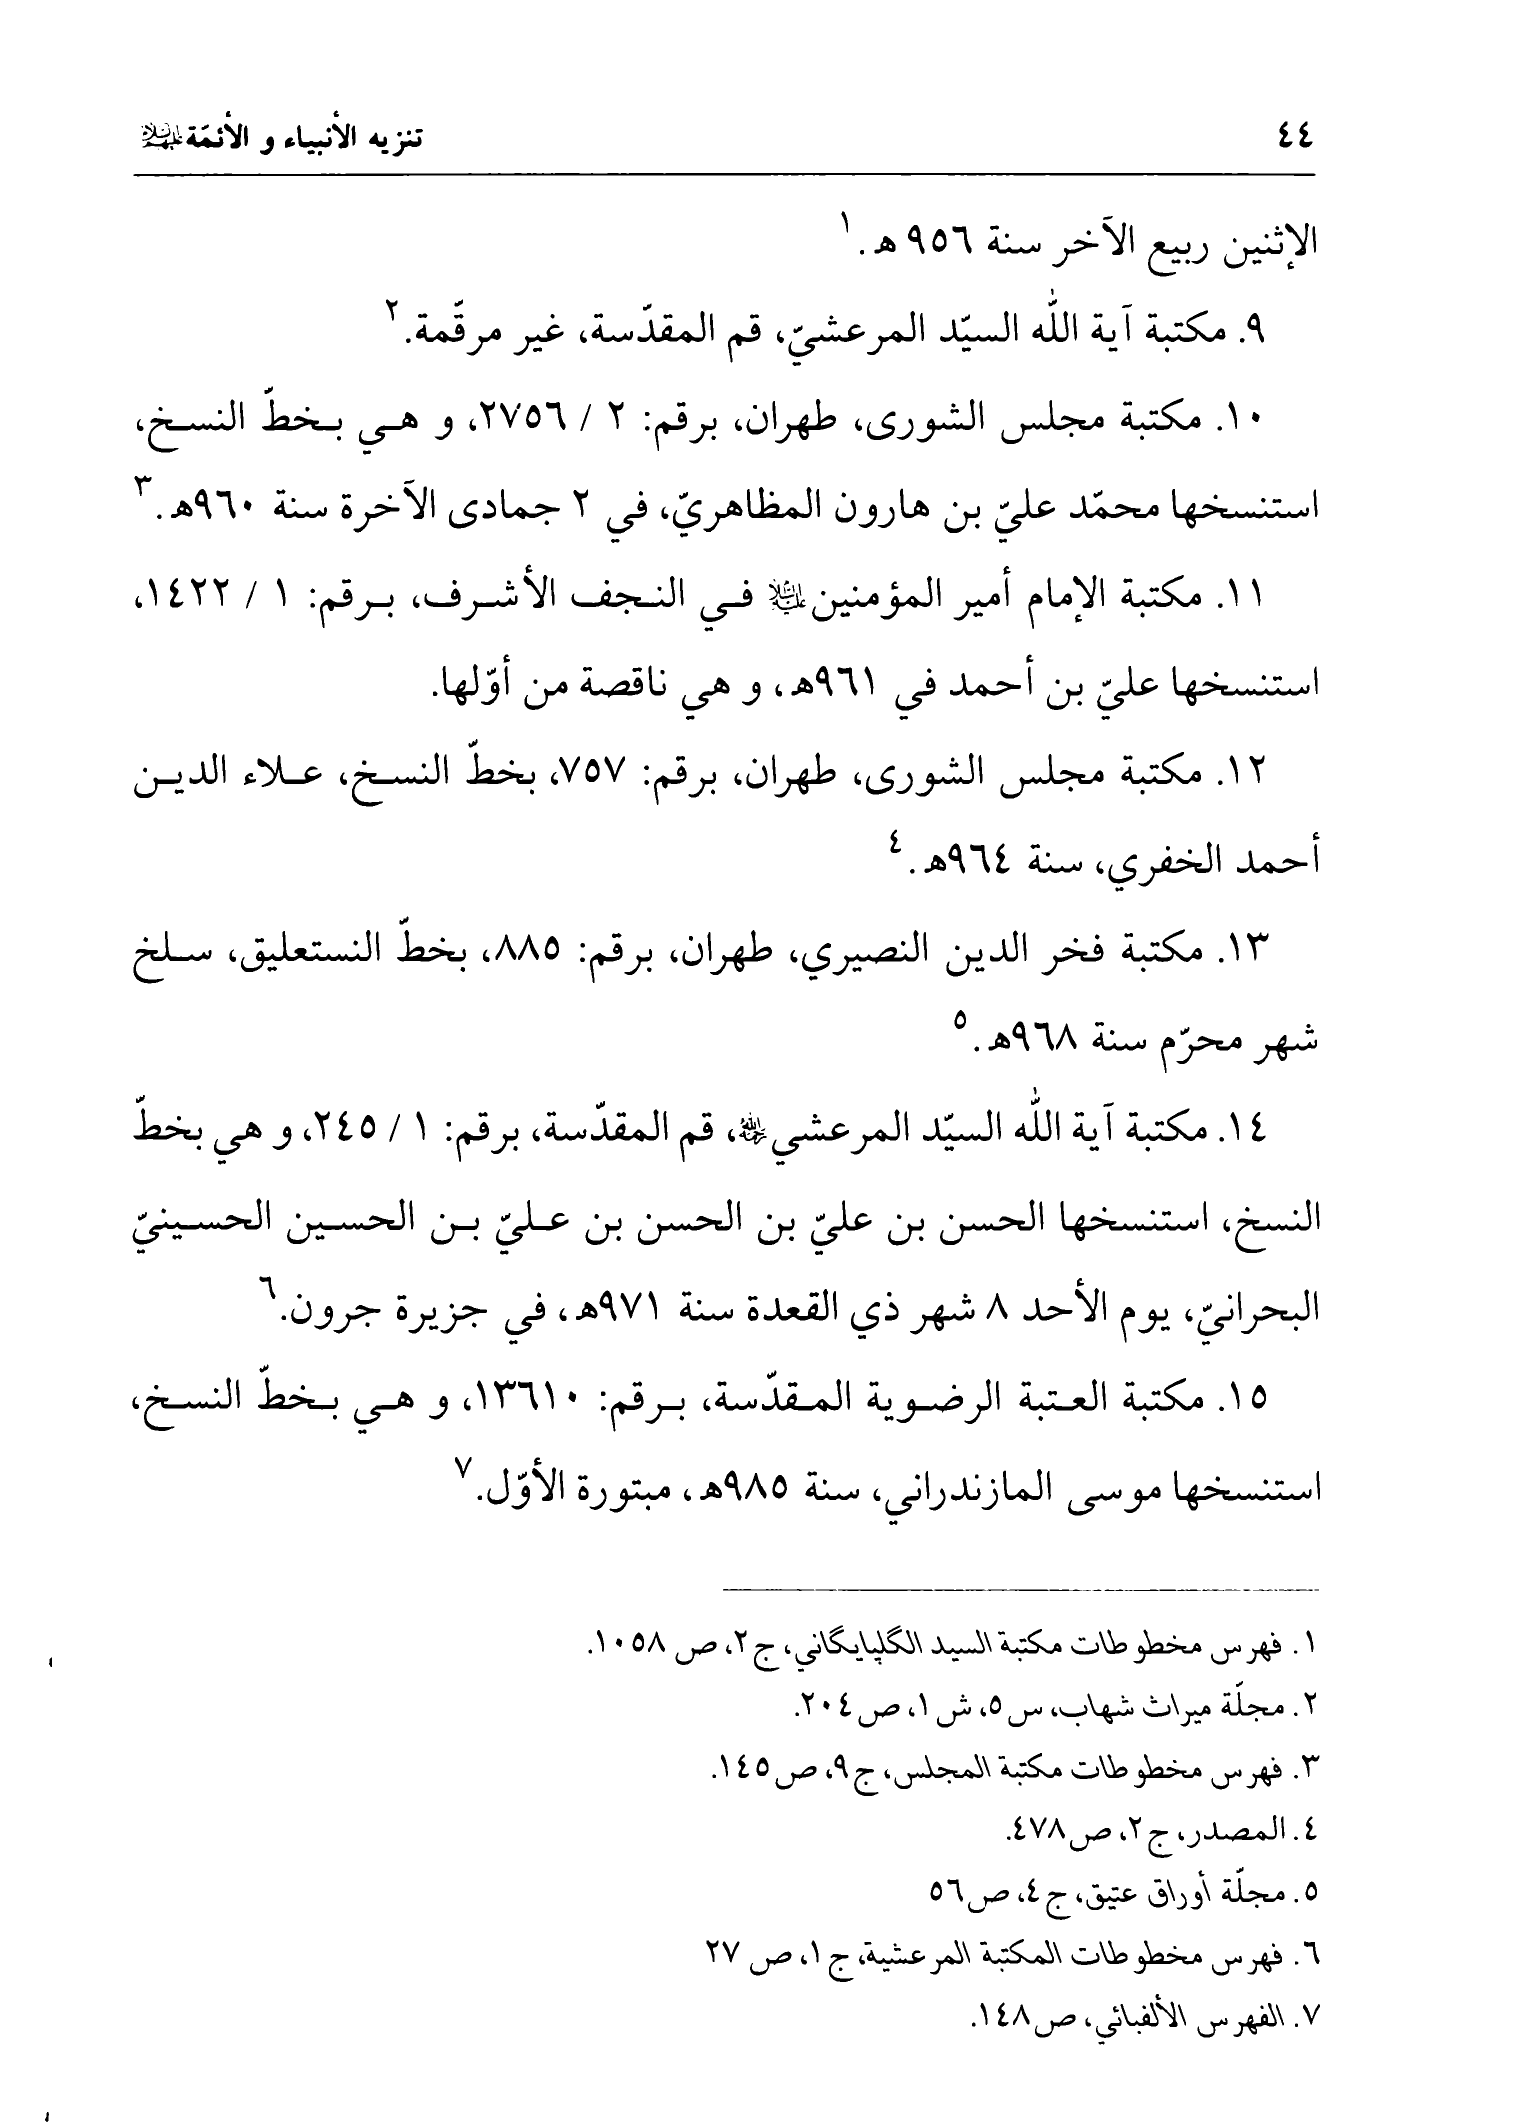 ٤٤ تنزيه الأنبياء و الأئمّة عليهم السلام
الإثنين ربيع الآخر سنة ٩٥٦ هـ.١
٩. مكتبة آية اللّٰه السيّد المرعشيّ، قم المقدّسة، غير مرقّمة.٢
١٠. مكتبة مجلس الشورى، طهران، برقم: ٢ / ٢٧٥٦، و هي بخطّ النسخ،
استنسخها محمّد عليّ بن هارون المظاهريّ، في ٢ جمادى الآخرة سنة ٩٦٠هـ.٣
١١. مكتبة الإمام أمير المؤمنين عليه السلام في النجف الأشرف، برقم: ١ / ١٤٢٢،
استنسخها عليّ بن أحمد في ٩٦١هـ، و هي ناقصة من أوّلها.
١٢. مكتبة مجلس الشورى، طهران، برقم: ٧٥٧، بخطّ النسخ، علاء الدين
أحمد الخفري، سنة ٩٦٤هـ.٤
١٣. مكتبة فخر الدين النصيري، طهران، برقم: ٨٨٥، بخطّ النستعليق، سلخ
شهر محرّم سنة ٩٦٨هـ.٥
١٤. مكتبة آية اللّٰه السيّد المرعشي رحمه الله، قم المقدّسة، برقم: ١ / ٢٤٥، و هي بخطّ
النسخ، استنسخها الحسن بن عليّ بن الحسن بن عليّ بن الحسين الحسينيّ
البحرانيّ، يوم الأحد ٨ شهر ذي القعدة سنة ٩٧١هـ، في جزيرة جرون.٦
١٥. مكتبة العتبة الرضوية المقدّسة، برقم: ١٣٦١٠، و هي بخطّ النسخ،
استنسخها موسى المازندراني، سنة ٩٨٥هـ، مبتورة الأوّل.٧
١. فهرس مخطوطات مكتبة السيد الگلپايگاني، ج٢، ص ١٠٥٨.
٢. مجلّة ميراث شهاب، س٥، ش١، ص٢٠٤.
٣. فهرس مخطوطات مكتبة المجلس، ج٩، ص١٤٥.
٤. المصدر، ج٢، ص٤٧٨.
٥. مجلّة أوراق عتيق، ج٤، ص٥٦
٦. فهرس مخطوطات المكتبة المرعشية، ج١، ص ٢٧
٧. الفهرس الألفبائي، ص١٤٨.